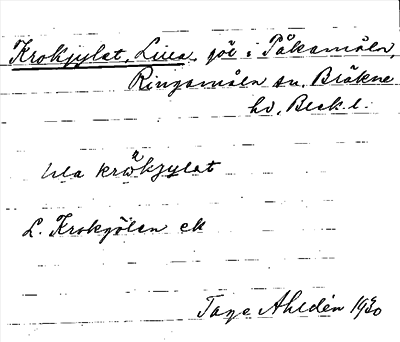 Krokjylat, Lilla, göl i Påkamåla,
Ringamåla sn. Bräkne
hd, Blek. l.
lìla krȍkjylat
L. Krokgölen ek
Tage Ahldén 1930